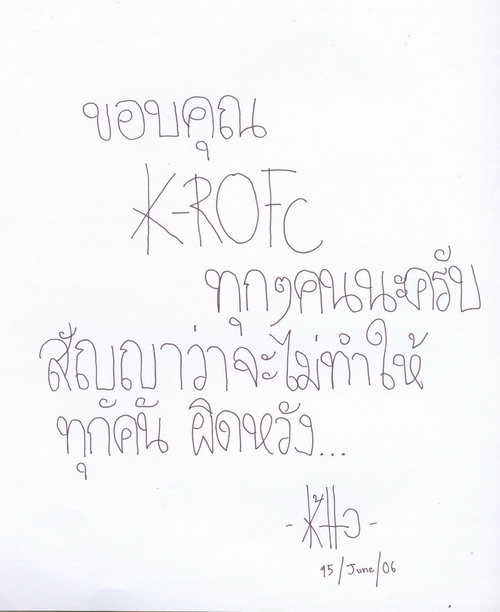 ขอบคุณ
K-ROFC
ทุกๆคนนะครับ
สัญญาว่าจะไม่ทำให้
ทุกคัน ผิดหวัง...
15/June/06